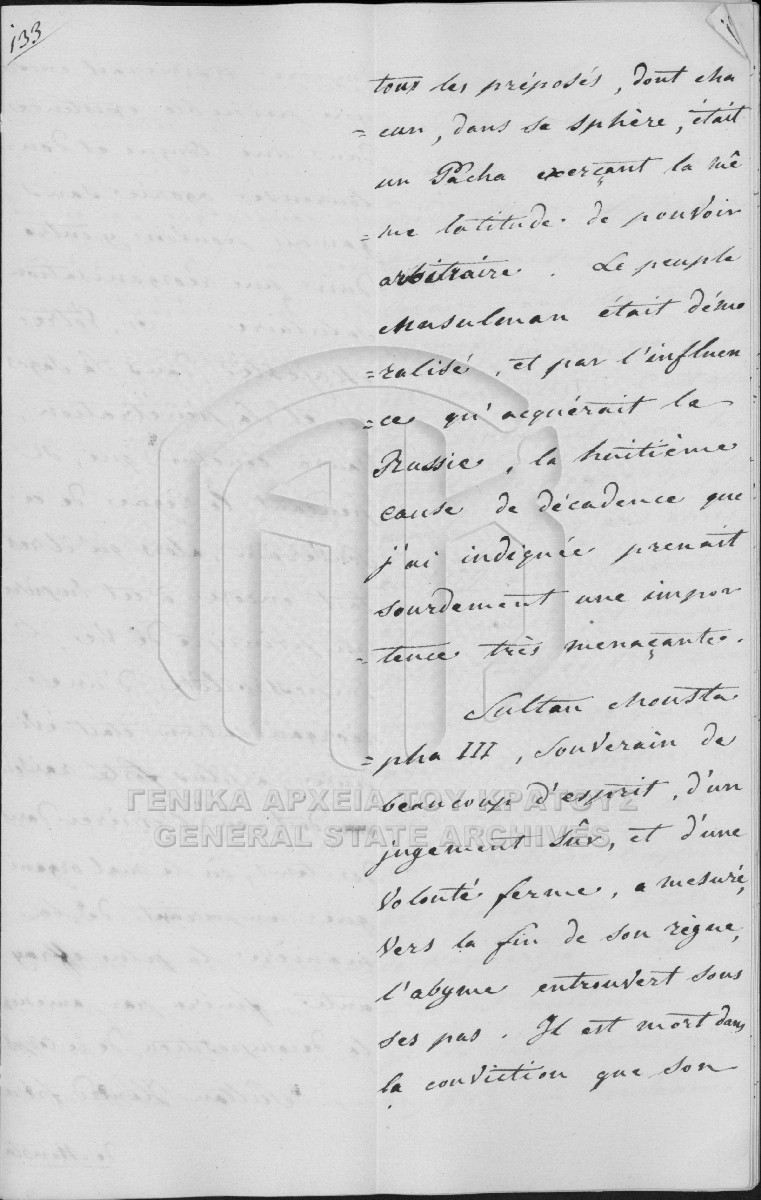 133
tous les préposés, dont cha
=cun, dans sa sphère, était
un Pacha exerçant la mê
=me latitude de pouvoir
arbitraire. Le peuple
Musulman était démo
=ralisé, et par l'influen
=ce qu'acquérait la
Russie, la huitième
cause de décadence que
j'ai indiquée prenait
sourdement une impor
=tence très menaçante.
Sultan Mousta
=pha III, Souverain de
beaucoup d'esprit, d'un
jugement sûr, et d'une
volonté ferme, a mesuré,
vers la fin de son règne,
l'abyme entrouvert sous
ses pas. Il est mort dans
la conviction que son
ΓΕΝΙΚΑ ΑΡΧΕΙΑ ΤΟΥ ΚΡΑΤΟΥΣ
GENERAL STATE ARCHIVES